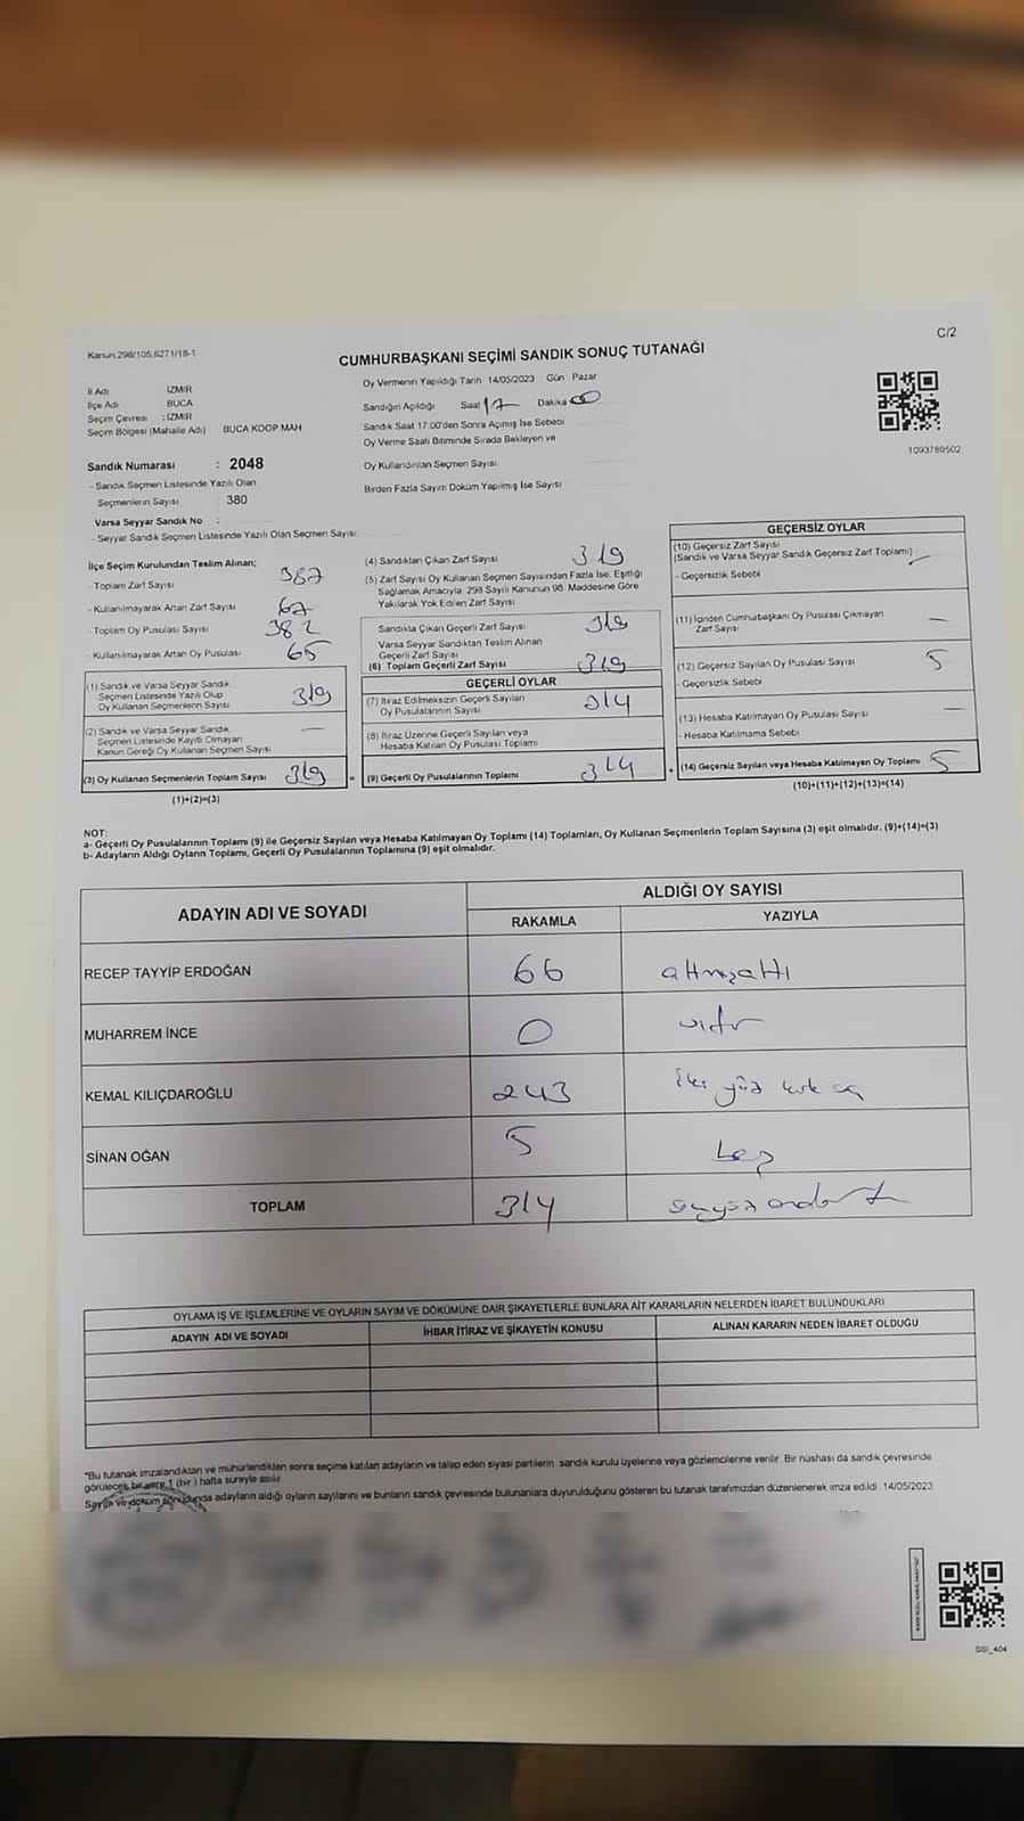 C/2
Kanun:298/105,6271/18-1
CUMHURBAŞKANI SEÇİMİ SANDIK SONUÇ TUTANAĞI
İl Adı İZMİR
İlçe Adı BUCA
Seçim Çevresi : İZMİR
Seçim Bölgesi (Mahalle Adı) BUCA KOOP MAH
Sandık Numarası : 2048
- Sandık Seçmen Listesinde Yazılı Olan
Seçmenlerin Sayısı 380
Varsa Seyyar Sandık No :
- Seyyar Sandık Seçmen Listesinde Yazılı Olan Seçmen Sayısı:
Oy Vermenin Yapıldığı Tarih 14/05/2023 Gün Pazar
Sandığın Açıldığı Saat 17 Dakika 00
Sandık Saat 17.00'den Sonra Açılmış İse Sebebi
Oy Verme Saati Bitiminde Sırada Bekleyen ve
Oy Kullandırılan Seçmen Sayısı
Birden Fazla Sayım Döküm Yapılmış İse Sayısı
1093789502
İlçe Seçim Kurulundan Teslim Alınan;
- Toplam Zarf Sayısı 387
- Kullanılmayarak Artan Zarf Sayısı 67
- Toplam Oy Pusulası Sayısı 382
- Kullanılmayarak Artan Oy Pusulası 65
(1) Sandık ve Varsa Seyyar Sandık
Seçmen Listesinde Yazılı Olup
Oy Kullanan Seçmenlerin Sayısı 319
(2) Sandık ve Varsa Seyyar Sandık
Seçmen Listesinde Kayıtlı Olmayan
Kanun Gereği Oy Kullanan Seçmen Sayısı —
(3) Oy Kullanan Seçmenlerin Toplam Sayısı 319
(1)+(2)=(3)
(4) Sandıktan Çıkan Zarf Sayısı 319
(5) Zarf Sayısı Oy Kullanan Seçmen Sayısından Fazla İse, Eşitliği
Sağlamak Amacıyla, 298 Sayılı Kanunun 98. Maddesine Göre
Yakılarak Yok Edilen Zarf Sayısı
Sandıkta Çıkan Geçerli Zarf Sayısı 319
Varsa Seyyar Sandıktan Teslim Alınan
Geçerli Zarf Sayısı
(6) Toplam Geçerli Zarf Sayısı 319
GEÇERLİ OYLAR
(7) İtiraz Edilmeksizin Geçerli Sayılan
Oy Pusulalarının Sayısı 314
(8) İtiraz Üzerine Geçerli Sayılan veya
Hesaba Katılan Oy Pusulası Toplamı
= (9) Geçerli Oy Pusulalarının Toplamı 314
GEÇERSİZ OYLAR
(10) Geçersiz Zarf Sayısı
(Sandık ve Varsa Seyyar Sandık Geçersiz Zarf Toplamı) —
- Geçersizlik Sebebi
(11) İçinden Cumhurbaşkanı Oy Pusulası Çıkmayan
Zarf Sayısı —
(12) Geçersiz Sayılan Oy Pusulası Sayısı 5
- Geçersizlik Sebebi
(13) Hesaba Katılmayan Oy Pusulası Sayısı —
- Hesaba Katılmama Sebebi
+ (14) Geçersiz Sayılan veya Hesaba Katılmayan Oy Toplamı 5
(10)+(11)+(12)+(13)=(14)
NOT:
a- Geçerli Oy Pusulalarının Toplamı (9) ile Geçersiz Sayılan veya Hesaba Katılmayan Oy Toplamı (14) Toplamları, Oy Kullanan Seçmenlerin Toplam Sayısına (3) eşit olmalıdır. (9)+(14)=(3)
b- Adayların Aldığı Oyların Toplamı, Geçerli Oy Pusulalarının Toplamına (9) eşit olmalıdır.
ADAYIN ADI VE SOYADI ALDIĞI OY SAYISI
RAKAMLA YAZIYLA
RECEP TAYYİP ERDOĞAN 66 altmışaltı
MUHARREM İNCE 0 sıfır
KEMAL KILIÇDAROĞLU 243 iki yüz kırk üç
SİNAN OĞAN 5 beş
TOPLAM 314 üçyüz ondört
OYLAMA İŞ VE İŞLEMLERİNE VE OYLARIN SAYIM VE DÖKÜMÜNE DAİR ŞİKAYETLERLE BUNLARA AİT KARARLARIN NELERDEN İBARET BULUNDUKLARI
ADAYIN ADI VE SOYADI İHBAR İTİRAZ VE ŞİKAYETİN KONUSU ALINAN KARARIN NEDEN İBARET OLDUĞU
*Bu tutanak imzalandıktan ve mühürlendikten sonra seçime katılan adayların ve talep eden siyasi partilerin sandık kurulu üyelerine veya gözlemcilerine verilir. Bir nüshası da sandık çevresinde
görülecek bir yere 1 (bir) hafta süreyle asılır.
Sayım ve döküm sonucunda adayların aldığı oyların sayılarını ve bunların sandık çevresinde bulunanlara duyurulduğunu gösteren bu tutanak tarafımızdan düzenlenerek imza edildi. 14/05/2023